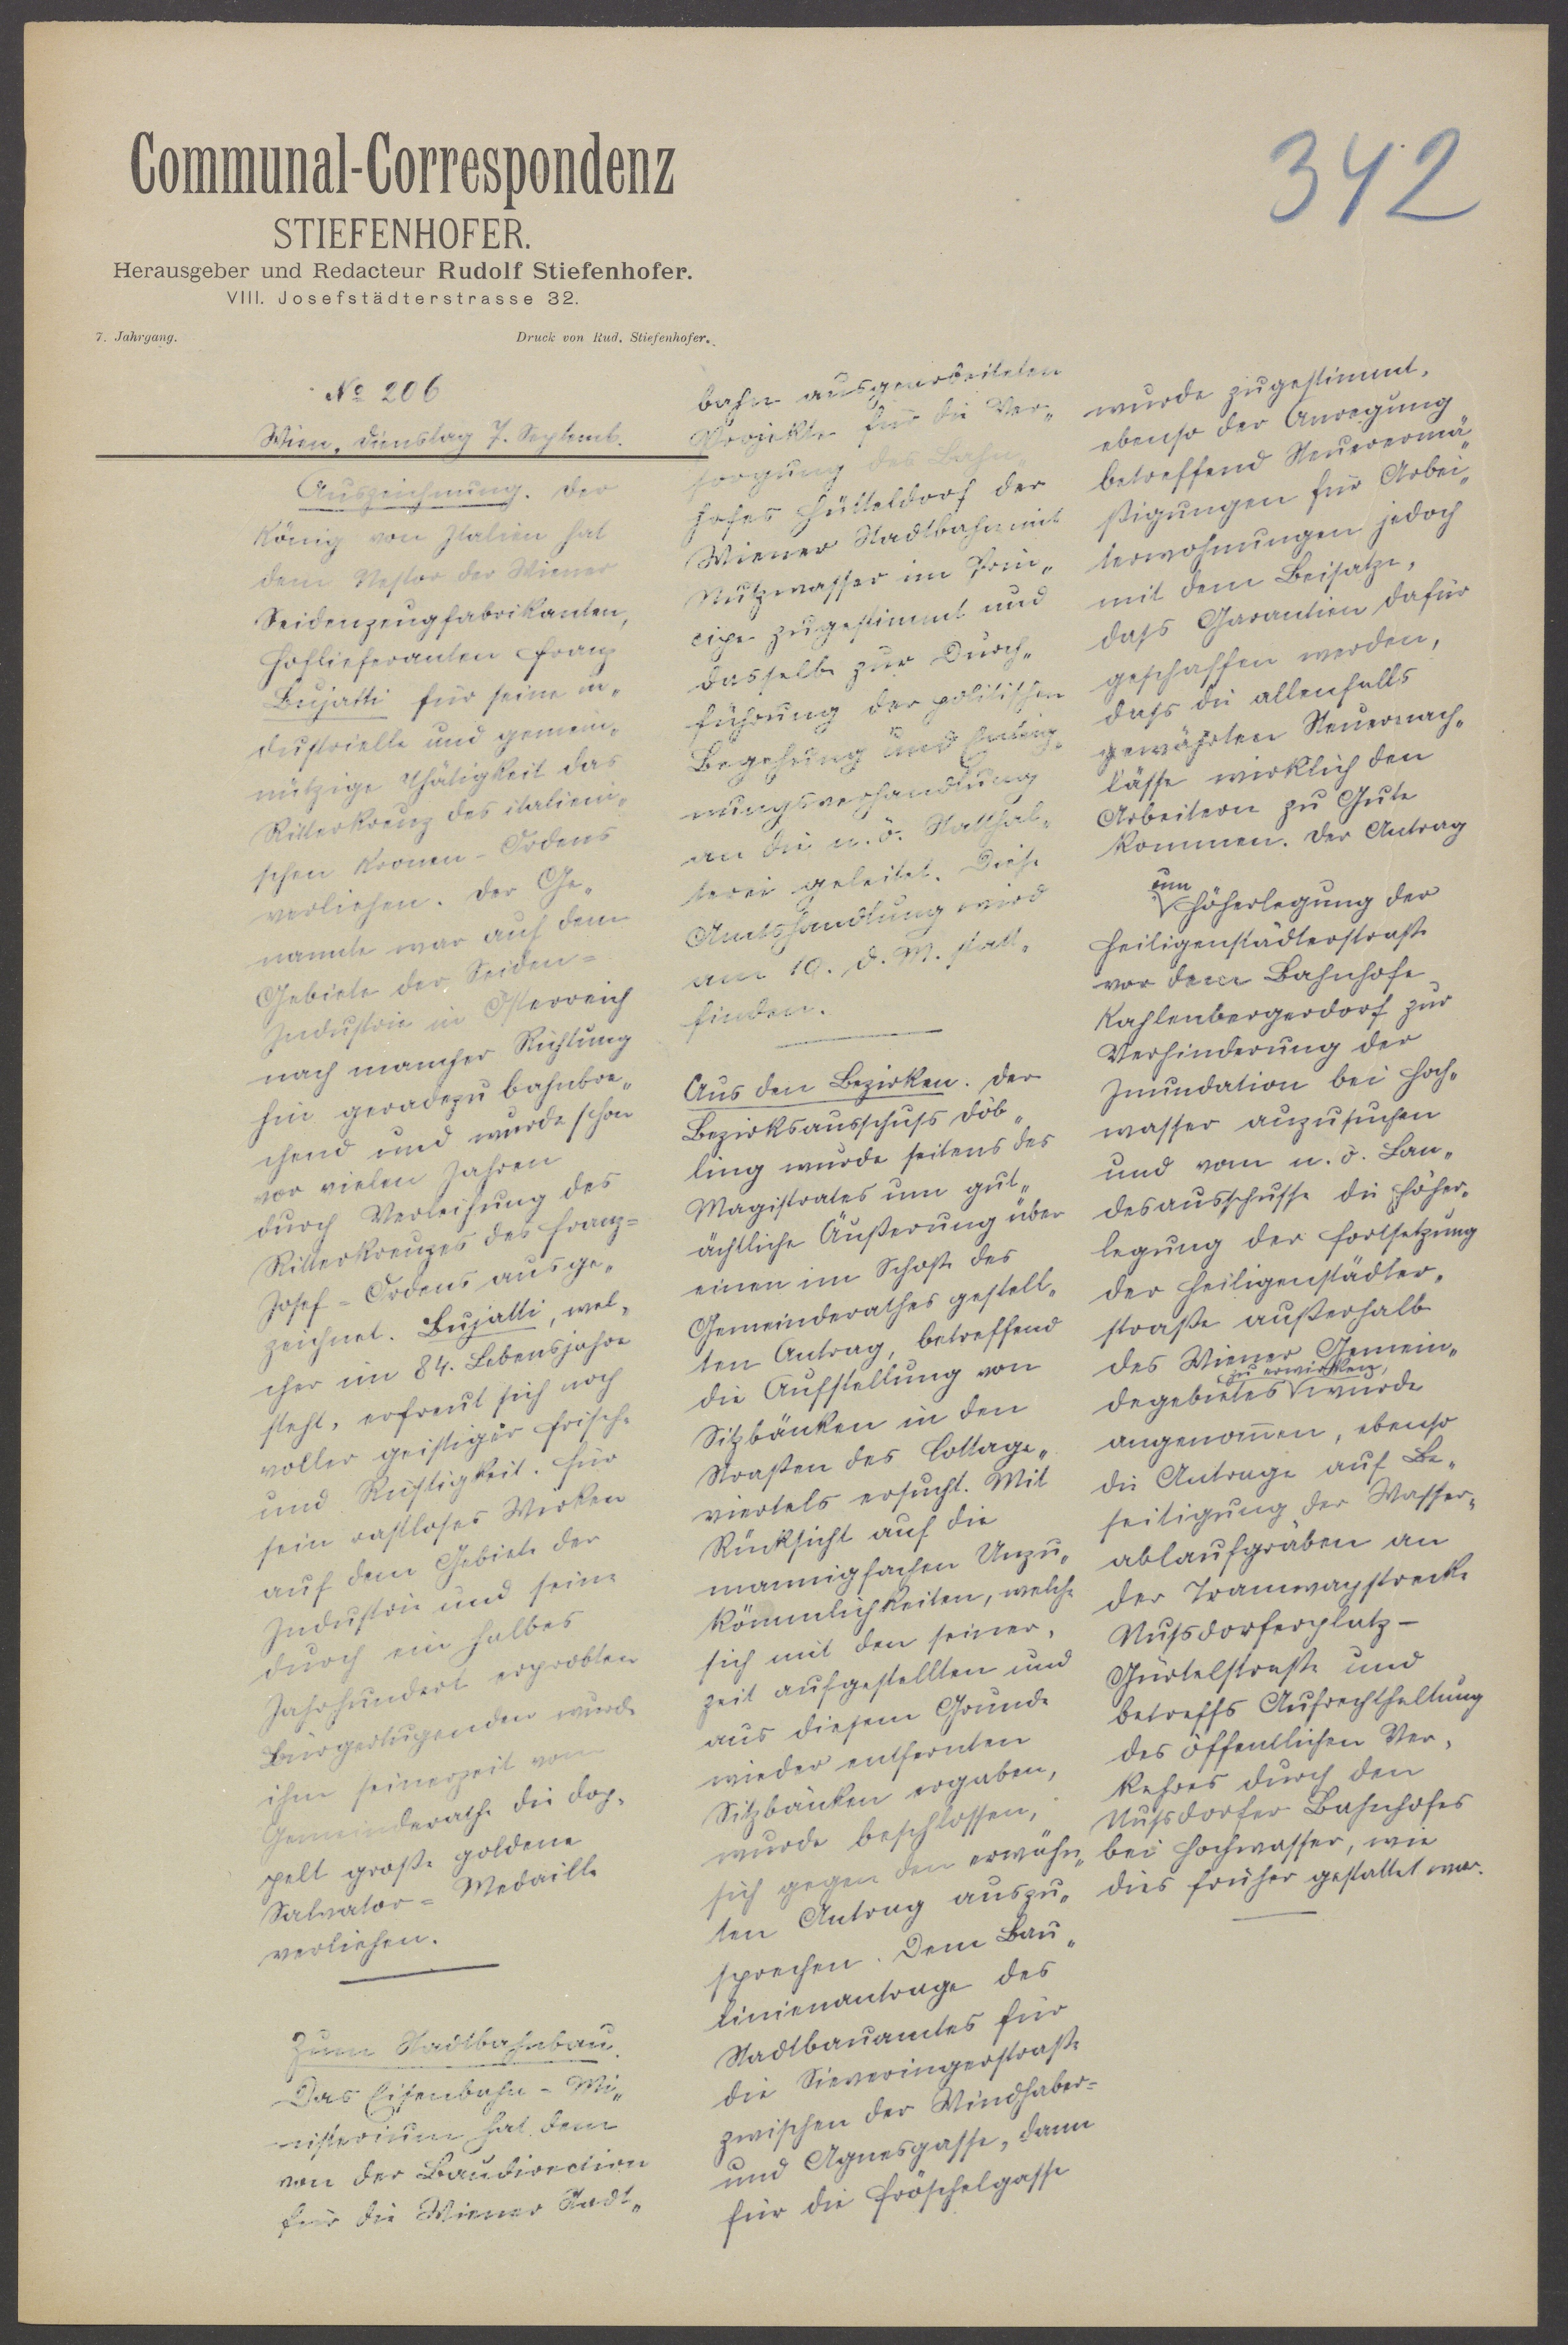 342
Communal-Correspondenz
STIEFENHOFER.
Herausgeber und Redacteur Rudolf Stiefenhofer.
VIII. Josefstädterstrasse 32.
7. Jahrgang. Druck von Rud. Stiefenhofer.
№ 206
Wien, Dienstag 7. Septemb.
Auszeichnung. Der
König von Italien hat
dem Nestor der Wiener
Seidenzeugfabrikanten,
Hoflieferanten Franz
Bujatti für seine in„
dustrielle und gemein„
nützige Thätigkeit das
Ritterkreuz des italieni„
schen Kronen-Ordens
verliehen. Der Ge„
nannte war auf dem
Gebiete der Seiden=
Industrie in Österreich
nach mancher Richtung
hin geradezu bahnbre„
chend und wurde schon
vor vielen Jahren
durch Verleihung des
Ritterkreuzes des Franz=
Josef-Ordens ausge„
zeichnet. Bujatti, wel„
cher im 84. Lebensjahre
steht, erfreut sich noch
voller geistiger Frische
und Rüstigkeit. Für
sein rastloses Wirken
auf dem Gebiete der
Industrie und seine
durch ein halbes
Jahrhundert erprobten
Bürgertugenden wurde
ihm seinerzeit vom
Gemeinderathe die dop„
pelt große goldene
Salvator=Medaille
verliehen.
Zum Stadtbahnbau.
Das Eisenbahn-Mi„
nisterium hat dem
von der Baudirection
für die Wiener Stadt„
bahn ausgearbeiteten
Projekte für die Ver„
sorgung des Bahn„
hofes Hütteldorf der
Wiener Stadtbahn mit
Nutzwasser im Prin„
cipe zugestimmt und
dasselbe zur Durch„
führung der politischen
Begehung und Enteig„
nungsverhandlung
an die n. ö. Statthal„
terei geleitet. Diese
Amtshandlung wird
am 10. d. M. statt„
finden.
Aus den Bezirken. Der
Bezirksausschuss Döb„
ling wurde seitens des
Magistrates um gut„
ächtliche Äußerung über
einen im Schoße des
Gemeinderathes gestell„
ten Antrag, betreffend
die Aufstellung von
Sitzbänken in den
Straßen des Cottage„
viertels ersucht. Mit
Rücksicht auf die
mannigfachen Unzu„
kömmlichkeiten, welche
sich mit den seiner„
zeit aufgestellten und
aus diesem Grunde
wieder entfernten
Sitzbänken ergaben,
wurde beschlossen,
sich gegen den erwähn„
ten Antrag auszu„
sprechen. Dem Bau„
linienantrage des
Stadtbauamtes für
die Sieveringerstraße
zwischen der Windhaber=
und Agnesgasse, dann
für die Fröschelgasse
wurde zugestimmt,
ebenso der Anregung
betreffend Steuerermä„
ßigungen für Arbei„
terwohnungen jedoch
mit dem Beisatze,
dass Garantien dafür
geschaffen werden,
dass die allenfalls
gewährten Steuernach„
lässe wirklich den
Arbeitern zu Gute
kommen. Der Antrag
um
Höherlegung der
Heiligenstädterstraße
vor dem Bahnhofe
Kahlenbergerdorf zur
Verhinderung der
Inundation bei Hoch„
wasser anzusuchen
und vom n. ö. Lan„
desausschusse die Höher„
legung der Fortsetzung
der Heiligenstädter„
straße außerhalb
des Wiener Gemein„
zu erwirken,
degebietes wurde
angenom̄en, ebenso
die Antrage auf Be„
seitigung der Wasser„
ablaufgräben an
der Tramwaystrecke
Nussdorferplatz-
Gürtelstraße und
betreffs Aufrechthaltung
des öffentlichen Ver„
kehres durch den
Nussdorfer Bahnhofes
bei Hochwasser, wie
dies früher gestattet war.